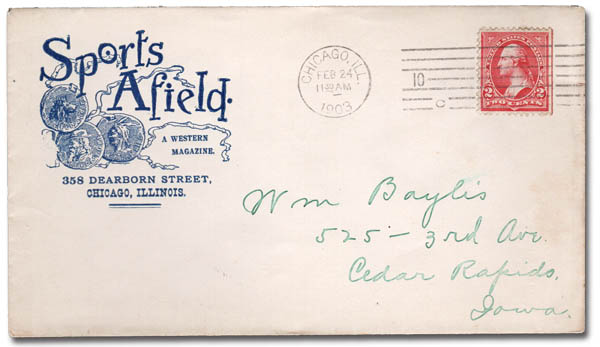 Sports
Afield.
A WESTERN
MAGAZINE.
358 DEARBORN STREET,
CHICAGO, ILLINOIS.
CHICAGO, ILL.
FEB 24
1903
10
C
2 TWO CENTS 2
Wm Baylis
525 – 3rd Ave.
Cedar Rapids,
Iowa.